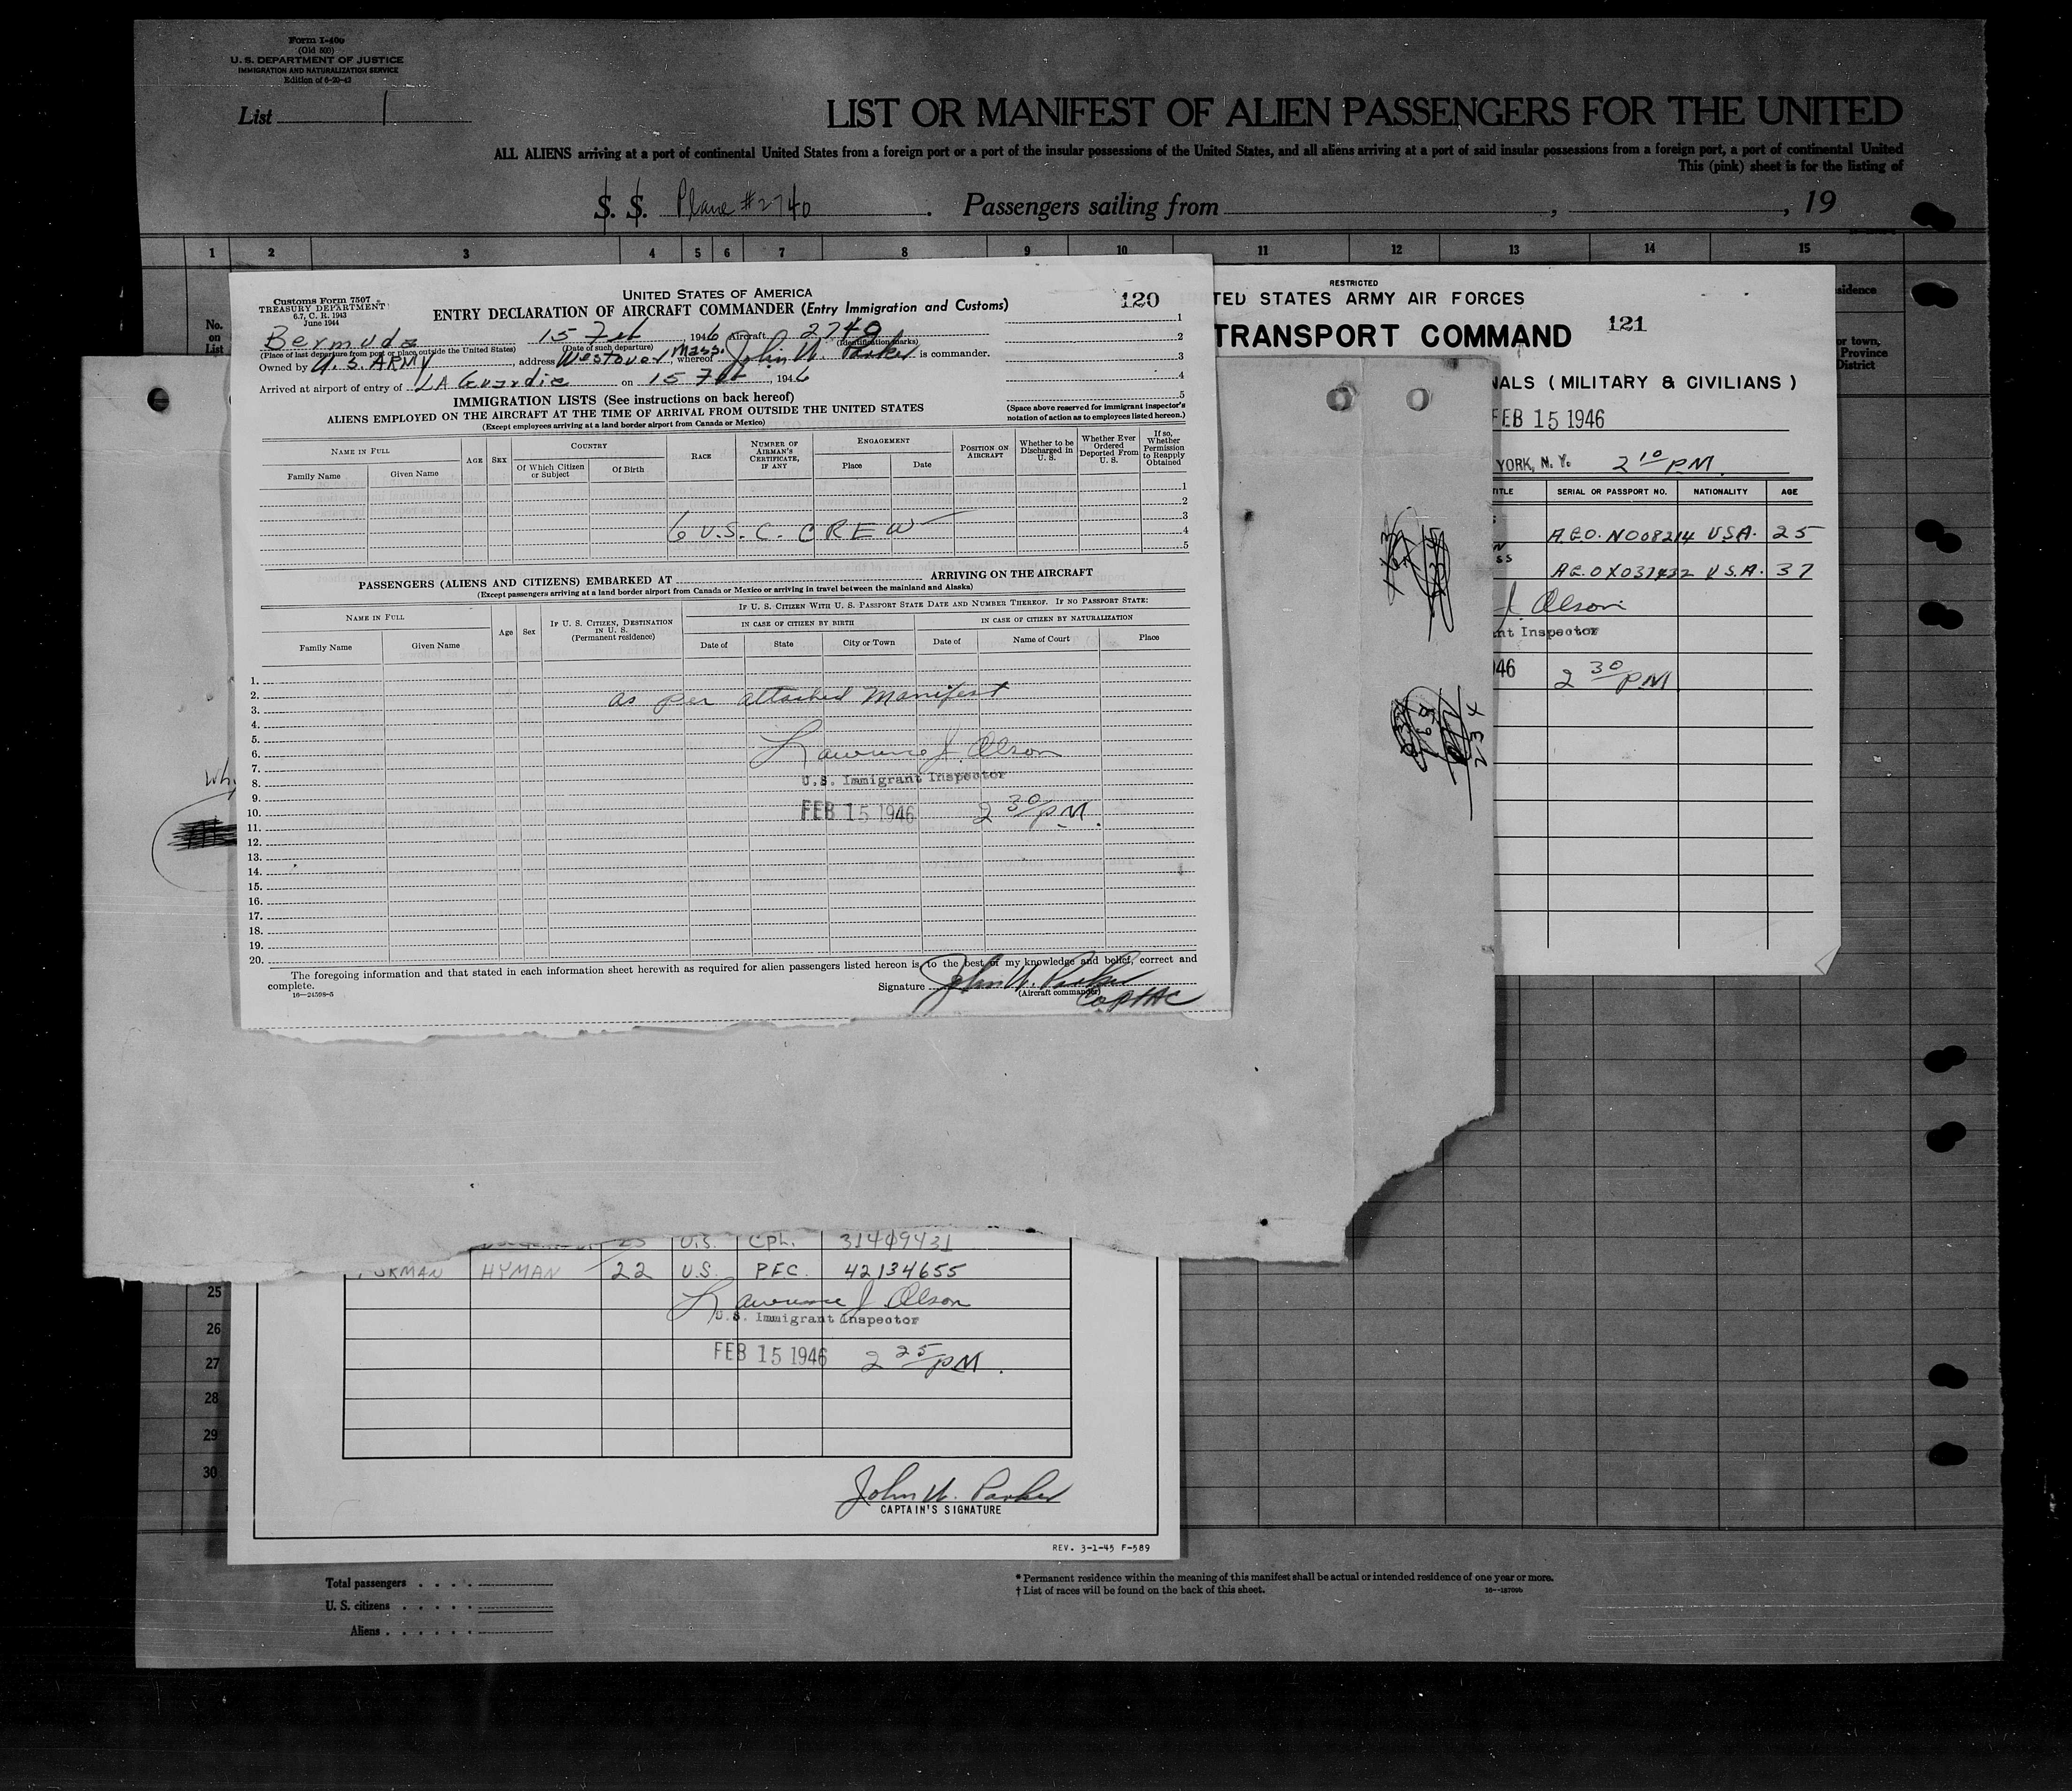 Form I-400
(Old 500)
U. S. DEPARTMENT OF JUSTICE
IMMIGRATION AND NATURALIZATION SERVICE
Edition of 6-20-42
List 1
LIST OR MANIFEST OF ALIEN PASSENGERS FOR THE UNITED
ALL ALIENS arriving at a port of continental United States from a foreign port or a port of the insular possessions of the United States, and all aliens arriving at a port of said insular possessions from a foreign port, a port of continental United
This (pink) sheet is for the listing of
S. S. Plane #2740. Passengers sailing from , , 19
1 2 3 4 5 6 7 8 9 10 11 12 13 14 15
No. on List
Customs Form 7507
TREASURY DEPARTMENT
6.7, C. R. 1943
June 1944
UNITED STATES OF AMERICA
ENTRY DECLARATION OF AIRCRAFT COMMANDER (Entry Immigration and Customs)
120
Bermuda 15 Feb 1946 Aircraft 2740
(Place of last departure from port or place outside the United States) (Date of such departure) (Identification marks)
Owned by U. S. ARMY, address Westover Mass. whereof John W. Parker is commander.
Arrived at airport of entry of LA Guardia on 15 Feb, 1946
IMMIGRATION LISTS (See instructions on back hereof)
ALIENS EMPLOYED ON THE AIRCRAFT AT THE TIME OF ARRIVAL FROM OUTSIDE THE UNITED STATES
(Except employees arriving at a land border airport from Canada or Mexico)
1
2
3
4
5
(Space above reserved for immigrant inspector's notation of action as to employees listed hereon.)
NAME IN FULL
Family Name Given Name
AGE SEX
COUNTRY
Of Which Citizen or Subject Of Birth
RACE
NUMBER OF AIRMAN'S CERTIFICATE, IF ANY
ENGAGEMENT
Place Date
POSITION ON AIRCRAFT
Whether to be Discharged in U. S.
Whether Ever Ordered Deported From U. S.
If so, Whether Permission to Reapply Obtained
1
2
3
4
5
6 U.S.C. CREW
PASSENGERS (ALIENS AND CITIZENS) EMBARKED AT ARRIVING ON THE AIRCRAFT
(Except passengers arriving at a land border airport from Canada or Mexico or arriving in travel between the mainland and Alaska)
NAME IN FULL
Family Name Given Name
Age Sex
IF U. S. CITIZEN, DESTINATION IN U. S.
(Permanent residence)
IF U. S. CITIZEN WITH U. S. PASSPORT STATE DATE AND NUMBER THEREOF. IF NO PASSPORT STATE:
IN CASE OF CITIZEN BY BIRTH IN CASE OF CITIZEN BY NATURALIZATION
Date of State City or Town Date of Name of Court Place
1.
2.
3.
4.
5.
6.
7.
8.
9.
10.
11.
12.
13.
14.
15.
16.
17.
18.
19.
20.
as per attached manifest
Lawrence J. Olson
U.S. Immigrant Inspector
FEB 15 1946 2 30 PM.
The foregoing information and that stated in each information sheet herewith as required for alien passengers listed hereon is, to the best of my knowledge and belief, correct and complete.
16—24598-5
Signature John W. Parker
(Aircraft commander)
Capt AC
RESTRICTED
TED STATES ARMY AIR FORCES
TRANSPORT COMMAND
121
NALS (MILITARY & CIVILIANS)
FEB 15 1946
YORK, N. Y. 2 10 PM.
TITLE SERIAL OR PASSPORT NO. NATIONALITY AGE
A.G.O. N008214 USA. 25
SS AGO X037432 U.S.A. 37
J Olson
nt Inspector
946 2 30 PM
sidence
or town,
Province
District
Why
234
23 U.S. Cpl. 31409431
HYMAN 22 U.S. PFC. 42134655
Lawrence J. Olson
U.S. Immigrant Inspector
FEB 15 1946 2 25 PM.
25
26
27
28
29
30
John W. Parker
CAPTAIN'S SIGNATURE
REV. 3-1-45 F-589
Total passengers
U. S. citizens
Aliens
* Permanent residence within the meaning of this manifest shall be actual or intended residence of one year or more.
† List of races will be found on the back of this sheet.